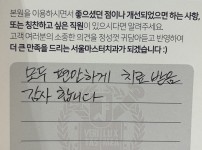 본원을 이용하시면서 좋으셨던 점이나 개선되었으면 하는 사항,
또는 칭찬하고 싶은 직원이 있으시다면 알려주세요.
고객 여러분의 소중한 의견을 정성껏 귀담아듣고 반영하여
더 큰 만족을 드리는 서울마스터치과가 되겠습니다 :)
모두 편안하게 치료 받음
감사 합니다